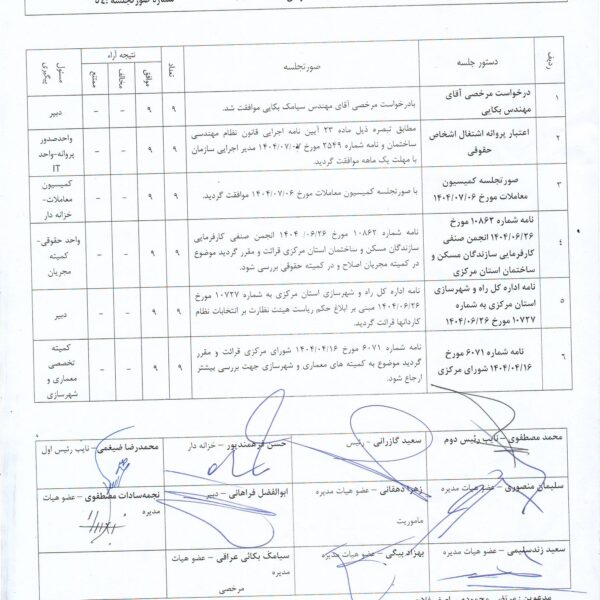 شماره صورتجلسه : ٥٤
ردیف
دستور جلسه
صورتجلسه
تعداد
نتیجه آراء
موافق
مخالف
ممتنع
مسئول پیگیری
۱
درخواست مرخصی آقای
مهندس بکایی
بادرخواست مرخصی آقای مهندس سیامک بکایی موافقت شد.
۹
۹
–
–
دبیر
۲
اعتبار پروانه اشتغال اشخاص
حقوقی
مطابق تبصره ذیل ماده ۲۳ آیین نامه اجرایی قانون نظام مهندسی
ساختمان و نامه شماره ۲۵۴۹ مورخ مدیر اجرایی سازمان
با مهلت یک ماهه موافقت گردید.
۹
۹
–
–
واحدصدور
پروانه-واحد
IT
۳
صورتجلسه کمیسیون
معاملات مورخ ۱۴۰۴/۰۷/۰۶
با صورتجلسه کمیسیون معاملات مورخ ۱۴۰۴/۰۷/۰۶ موافقت گردید.
۹
۹
–
–
کمیسیون
معاملات-
خزانه دار
۴
نامه شماره ۱۰۸۶۲ مورخ
۱۴۰۴/۰۶/۲۶ انجمن صنفی
کارفرمایی سازندگان مسکن و
ساختمان استان مرکزی
نامه شماره ۱۰۸۶۲ مورخ ۱۴۰۴/۰۶/۲۶ انجمن صنفی کارفرمایی
سازندگان مسکن و ساختمان استان مرکزی قرائت و مقرر گردید موضوع
در کمیته مجریان اصلاح و در کمیته حقوقی بررسی شود.
۹
۹
–
–
واحد حقوقی-
کمیته
مجریان
۵
نامه اداره کل راه و شهرسازی
استان مرکزی به شماره
۱۰۷۲۷ مورخ ۱۴۰۴/۰۶/۲۶
نامه اداره کل راه و شهرسازی استان مرکزی به شماره ۱۰۷۲۷ مورخ
۱۴۰۴/۰۶/۲۶ مبنی بر ابلاغ حکم ریاست هیئت نظارت بر انتخابات نظام
کاردانها قرائت گردید.
۹
۹
–
–
دبیر
۶
نامه شماره ۶۰۷۱ مورخ
۱۴۰۴/۰۴/۱۶ شورای مرکزی
نامه شماره ۶۰۷۱ مورخ ۱۴۰۴/۰۴/۱۶ شورای مرکزی قرائت و مقرر
گردید موضوع به کمیته های معماری و شهرسازی جهت بررسی بیشتر
ارجاع شود.
۹
۹
–
–
کمیته
تخصصی
معماری و
شهرسازی
محمد مصطفوی – نایب رئیس دوم
سعید گازرانی – رئیس
حسن فرهمندپور – خزانه دار
محمدرضا ضیغمی – نایب رئیس اول
سلیمان منصوری – عضو هیات مدیره
زهرا دهقانی – عضو هیات مدیره
ماموریت
ابوالفضل فراهانی – دبیر
نجمه‌سادات مصطفوی – عضو هیات
مدیره
سعید زندسلیمی – عضو هیات مدیره
بهزاد بیگی – عضو هیات مدیره
سیامک بکائی عراقی – عضو هیات
مدیره
مرخصی